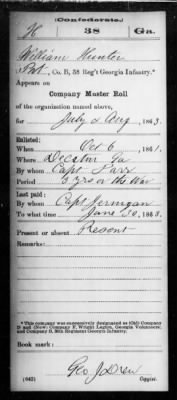 (Confederate.)
H 38 Ga.
William Hunter
Pvt., Co. B, 38 Reg't Georgia Infantry.*
Appears on
Company Muster Roll
of the organization named above,
for July & Aug, 1863.
Enlisted:
When Oct 6, 1861.
Where Decatur Ga
By whom Capt Parr
Period 3 yrs or the War
Last paid:
By whom Capt Jernigan
To what time June 30, 1863.
Present or absent Present
Remarks:
*This company was successively designated as (Old) Company
D and (New) Company F, Wright Legion, Georgia Volunteers;
and Company B, 38th Regiment Georgia Infantry.
Book mark:
Geo J Drew
(642) Copyist.